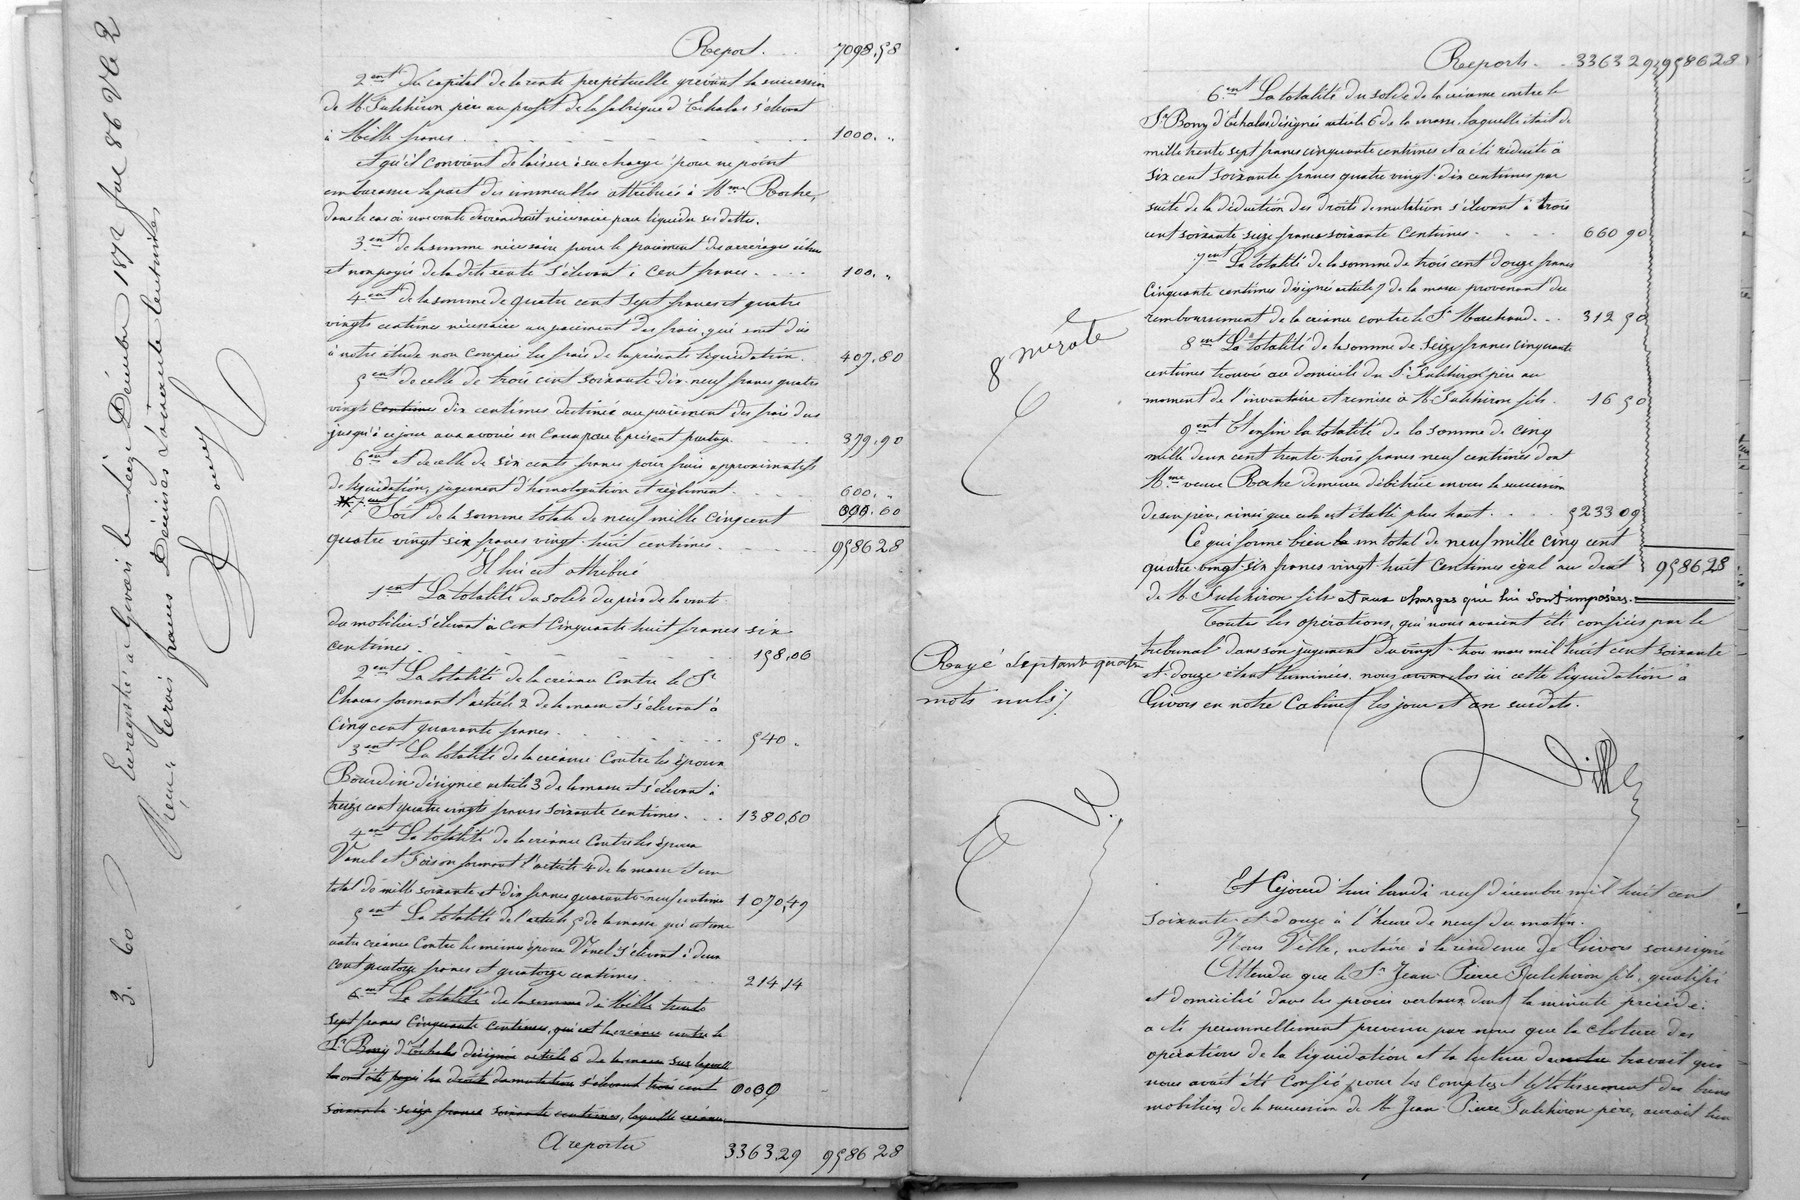 Report. . . 7098,58
2ent du capital de la rente perpétuelle grévant la succession
de Mr Fulchiron père au profit de la fabrique d'Echalas s'élevant
à Mille francs. 1000. "
et qu'il convient de laisser à sa charge pour ne point
embarrasser la part des immeubles attribués à Mme Roche,
dans le cas où une vente deviendrait nécessaire pour liquider ses dettes.
3ent de la somme nécessaire pour le paiement des arrérages échus
et non payés de la dite rente s'élevant à Cent francs. . . . 100. "
4ent de la somme de quatre cent sept francs et quatre
vingts centimes nécessaire au paiement des frais, qui sont dus
à notre étude non compris les frais de la présente liquidation. 407,80
5ent de celle de trois cent soixante-dix-neuf francs quatre
vingt Centimes dix centimes destinée au paiement des frais dus
jusqu'à ce jour aux avoués en Cause pour le présent partage. 379,90
6ent et de celle de six cents francs pour frais approximatifs
de liquidation, jugement d'homologation et règlement. 600. "
7ent Soit de la somme totale de neuf mille cinq cent 000.00
quatre vingt-six francs vingt-huit centimes. 9586 28
Il lui est attribué
1ent La totalité du solde du prix de la vente
du mobilier s'élevant à Cent Cinquante huit francs six
centimes. 158,06
2ent La totalité de la créance Contre le Sr
Chavas formant l'article 2 de la masse et s'élevant à
Cinq cent quarante francs. 540 "
3ent La totalité de la créance Contre les époux
Bourdin désignée article 3 de la masse et s'élevant à
treize cent quatre vingts francs soixante centimes. . . . 1380,60
4ent La totalité de la créance Contre les époux
Vanel et Poison formant l'article 4 de la masse d'un
total de mille soixante et dix francs quarante-neuf centimes 1070,49
5ent La totalité de l'article 5 de la masse qui est une
autre créance Contre les mêmes époux Vanel s'élevant à deux
cent quatorze francs et quatorze centimes. 214,14
6ent La totalité de la somme de Mille trente
sept francs Cinquante Centimes, qui est la créance contre le
Sr Bony d'Echalas désignée article 6 de la masse sur laquelle
ont été payés les droits de mutation s'élevant trois cent 0000
soixante-seize francs soixante centimes, laquelle créance
A reporter 3363 29 9586 28
3. 60
Enregistré à Givors le Seize Décembre 1872 fol 86 Vo C 2
Reçu Trois francs Décimes Soixante Centimes
Reports. . 3363 29 9586 28
6ent La totalité du solde de la créance contre le
Sr Bony d'Echalas désignés article 6 de la masse, laquelle était de
mille trente sept francs cinquante centimes et a été réduite à
six cent soixante francs quatre vingt-dix centimes par
suite de la déduction des droits de mutation s'élevant à trois
cent soixante seize francs soixante Centimes. . . . 660 90
7ent La totalité de la somme de trois cent douze francs
Cinquante centimes désigné article 7 de la masse provenant du
remboursement de la créance contre le Sr Marchand. . . 312 50
8ent La totalité de la somme de Seize francs cinquante
centimes trouvés au domicile du Sr Fulchiron père au
moment de l'inventaire et remise à Mr Fulchiron fils. 16 50
9ent Et enfin la totalité de la somme de cinq
mille deux cent trente-trois francs neuf centimes dont
Mme veuve Roche demeure débitrice envers la succession
de son père, ainsi que cela est établi plus haut. . . . 5233 09
Ce qui forme bien la un total de neuf mille cinq cent
quatre-vingt-six francs vingt-huit Centimes égal au droit 9586,28
de Mr Fulchiron fils et aux charges qui lui sont imposées.
Toutes les opérations, qui nous avaient été confiées par le
tribunal dans son jugement du vingt-trois mars mil huit cent soixante
et-douze étant terminées, nous avons clos ici cette liquidation à
Givors en notre Cabinet les jour et an susdits.
8 m
Rayé Septante-quatre
mots nuls
Ville
Et Cejourd'hui lundi neuf décembre mil huit cent
soixante-et-douze à l'heure de neuf du matin.
Nous Ville, notaire à la résidence de Givors soussigné
Attendu que le Sr Jean-Pierre Fulchiron fils, qualifié
et domicilié dans les procès verbaux dont la minute précède
a été personnellement prévenu par nous que la clôture des
opérations de la liquidation et la lecture de notre travail qui
nous avait été Confié pour les Comptes et lotissement des biens
mobiliers de la succession de Mr Jean-Pierre Fulchiron père, aurait lieu